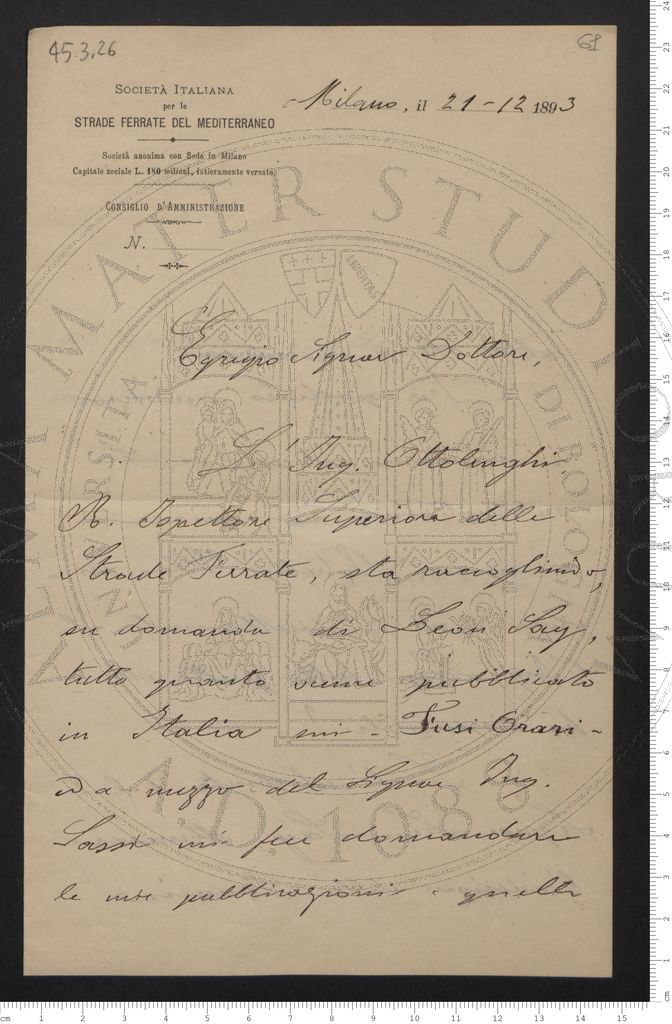 45.3.26
61
SOCIETÀ ITALIANA
per le
STRADE FERRATE DEL MEDITERRANEO
Società anonima con Sede in Milano
Capitale sociale L. 180 milioni, interamente versato.
CONSIGLIO D'AMMINISTRAZIONE
N.
Milano, il 21-12 1893
Egregio Signor Dottore,
L'Ing. Ottolenghi
R. Ispettore Superiore delle
Strade Ferrate, sta raccogliendo,
su domanda di Leon Say,
tutto quanto venne pubblicato
in Italia sui - Fusi Orari -
ed a mezzo del Signor Ing.
Sassi mi fece domandare
le mie pubblicazioni e quelle
ALMA MATER STUDIORUM
UNIVERSITÀ DI BOLOGNA
LIBERTAS
A.D. 1088